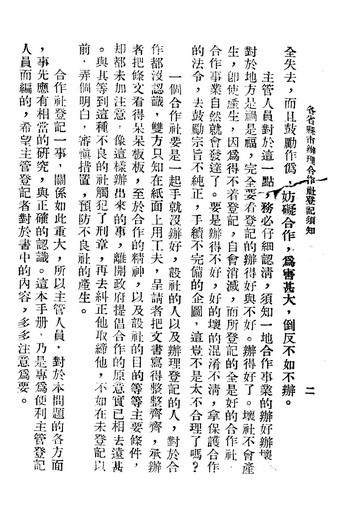 各省縣市辦理合作社登記須知
二
全失去，而且鼓勵作僞，妨礙合作，爲害甚大，倒反不如不辦。
主管人員對於這一點，務必仔細認清，須知一地合作事業的辦好辦壞，
對於地方是禍是福，完全要看登記的辦得好與不好。辦得好了。壞社不會產
生，卽使產生，因爲得不着登記，自會消滅，而所登記的全是好的合作社，
合作事業自然就會發達了。要是辦得不好，好的壞的混淆不清，拿保護合作
的法令，去鼓勵宗旨不純正，手續不完備的企圖，這豈不是太不合理了嗎？
一個合作社要是一起手就沒辦好，設社的人以及辦理登記的人，對於合
作都沒認識，雙方只知在紙面上用工夫，呈請者把文書寫得整整齊齊，承辦
者把條文看得呆呆板板，至於合作的精神，以及設社的目的等等主要條件，
却都未加注意，像這樣辦出來的事，離開政府提倡合作的原意實已相去遠甚
。與其等到這種不良的社觸犯了刑章，再去糾正他取締他，不如在未登記以
前，弄個明白，審愼措置，預防不良社的產生。
合作社登記一事，關係如此重大，所以主管人員，對於本問題的各方面
，事先應有相當的研究，與正確的認識。這本手册，乃是專爲便利主管登記
人員而編的，希望主管登記者對於書中的內容，多多注意爲要。